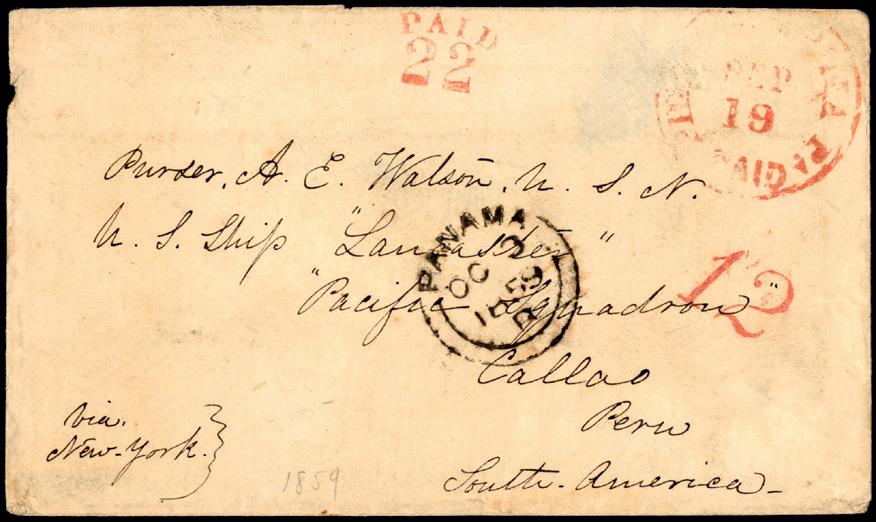 PAID
22
PHILADELPHIA PA
SEP
19
PAID
Purser, A. E. Watson, U. S. N.
U. S. Ship "Lancaster"
"Pacific Squadron"
12
PANAMA
OC 2
1859
Callao
Peru
South-America-
via.
New-York.
1859